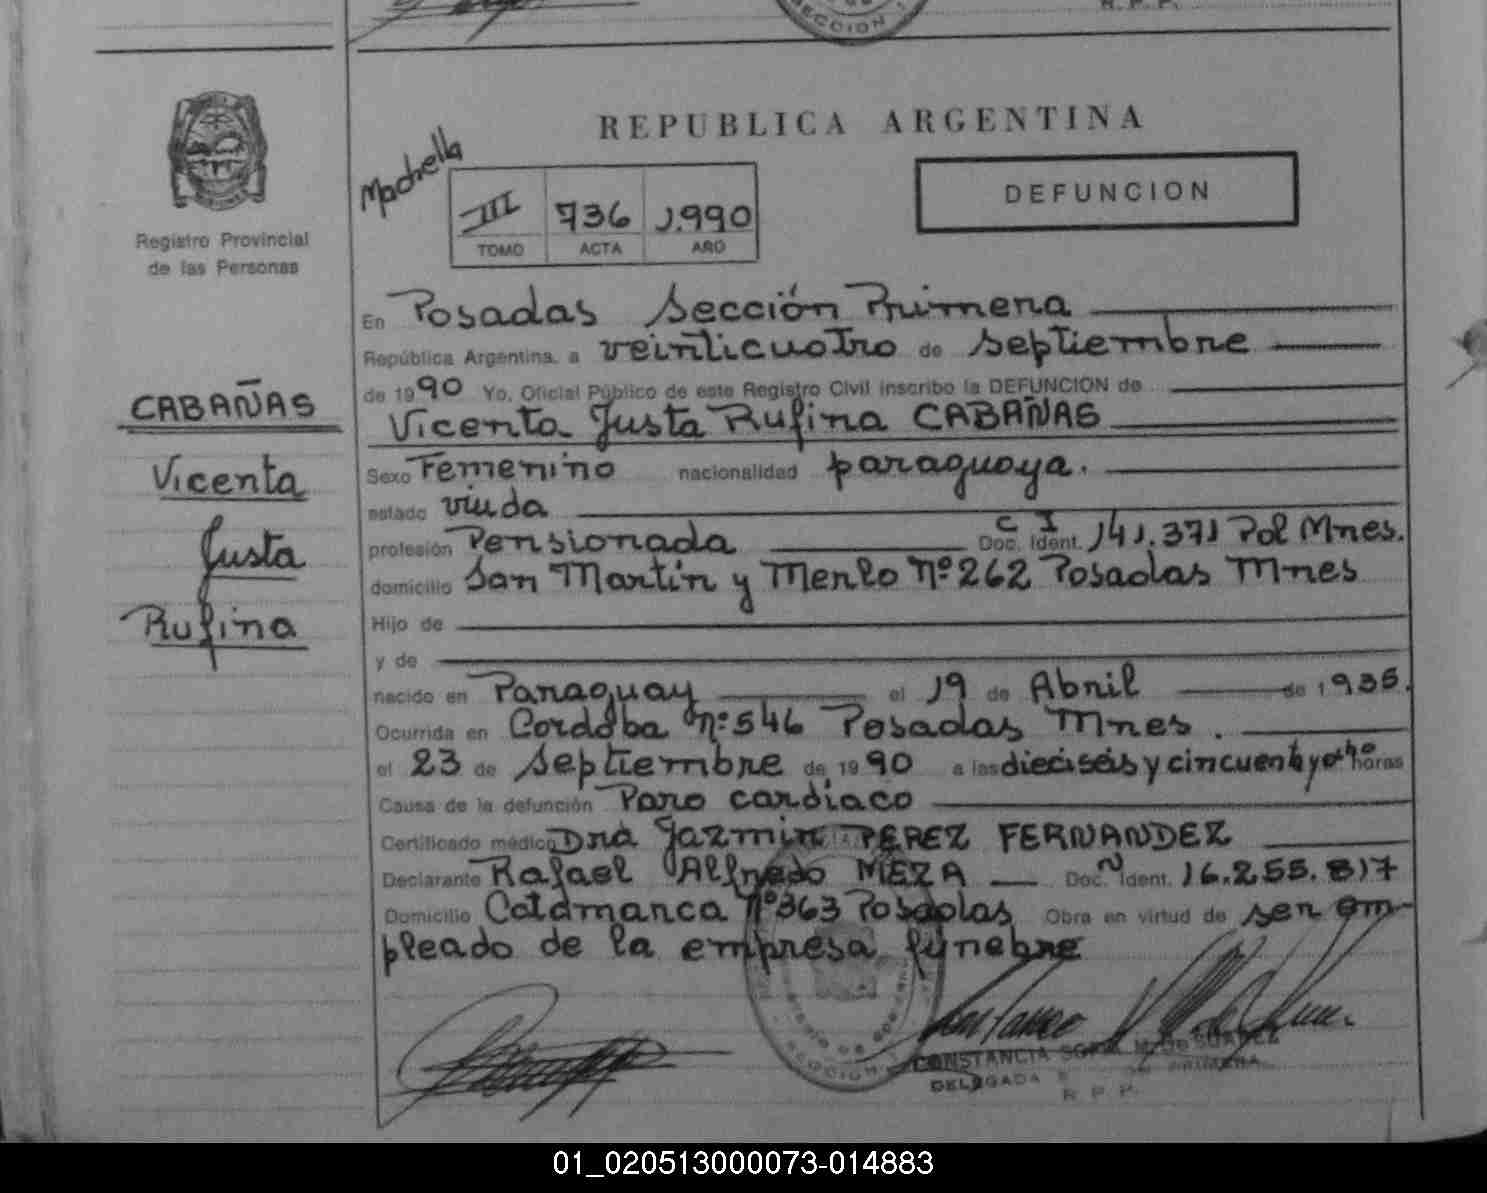 SECCION 1
R. P. P.
REPUBLICA ARGENTINA
DEFUNCION
Machella
III 736 1.990
TOMO ACTA AÑO
Registro Provincial
de las Personas
CABAÑAS
Vicenta
Justa
Rufina
En Posadas Sección Primera
República Argentina, a veinticuatro de septiembre
de 1990 Yo, Oficial Público de este Registro Civil inscribo la DEFUNCION de
Vicenta Justa Rufina CABAÑAS
Sexo Femenino nacionalidad paraguaya.
estado viuda
profesión Pensionada C I Doc. Ident. 141.371 Pol Mnes.
domicilio San Martín y Merlo Nº 262 Posadas Mnes
Hijo de
y de
nacido en Paraguay el 19 de Abril de 1935.
Ocurrida en Cordoba Nº 546 Posadas Mnes.
el 23 de septiembre de 1990 a las dieciseis y cincuenta y ocho horas
Causa de la defunción Paro cardiaco
Certificado médico Dra Jazmin PEREZ FERNANDEZ
Declarante Rafael Alfredo MEZA Doc. N Ident. 16.255.817
Domicilio Catamanca Nº 363 Posadas Obra en virtud de ser em-
pleado de la empresa fúnebre
SECCION 1
CONSTANCIA M. DE SUAREZ
DELEGADA PRIMERA
R. P. P.
01_020513000073-014883